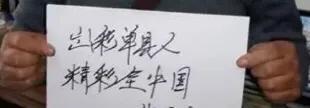 出彩单县人
精彩全中国